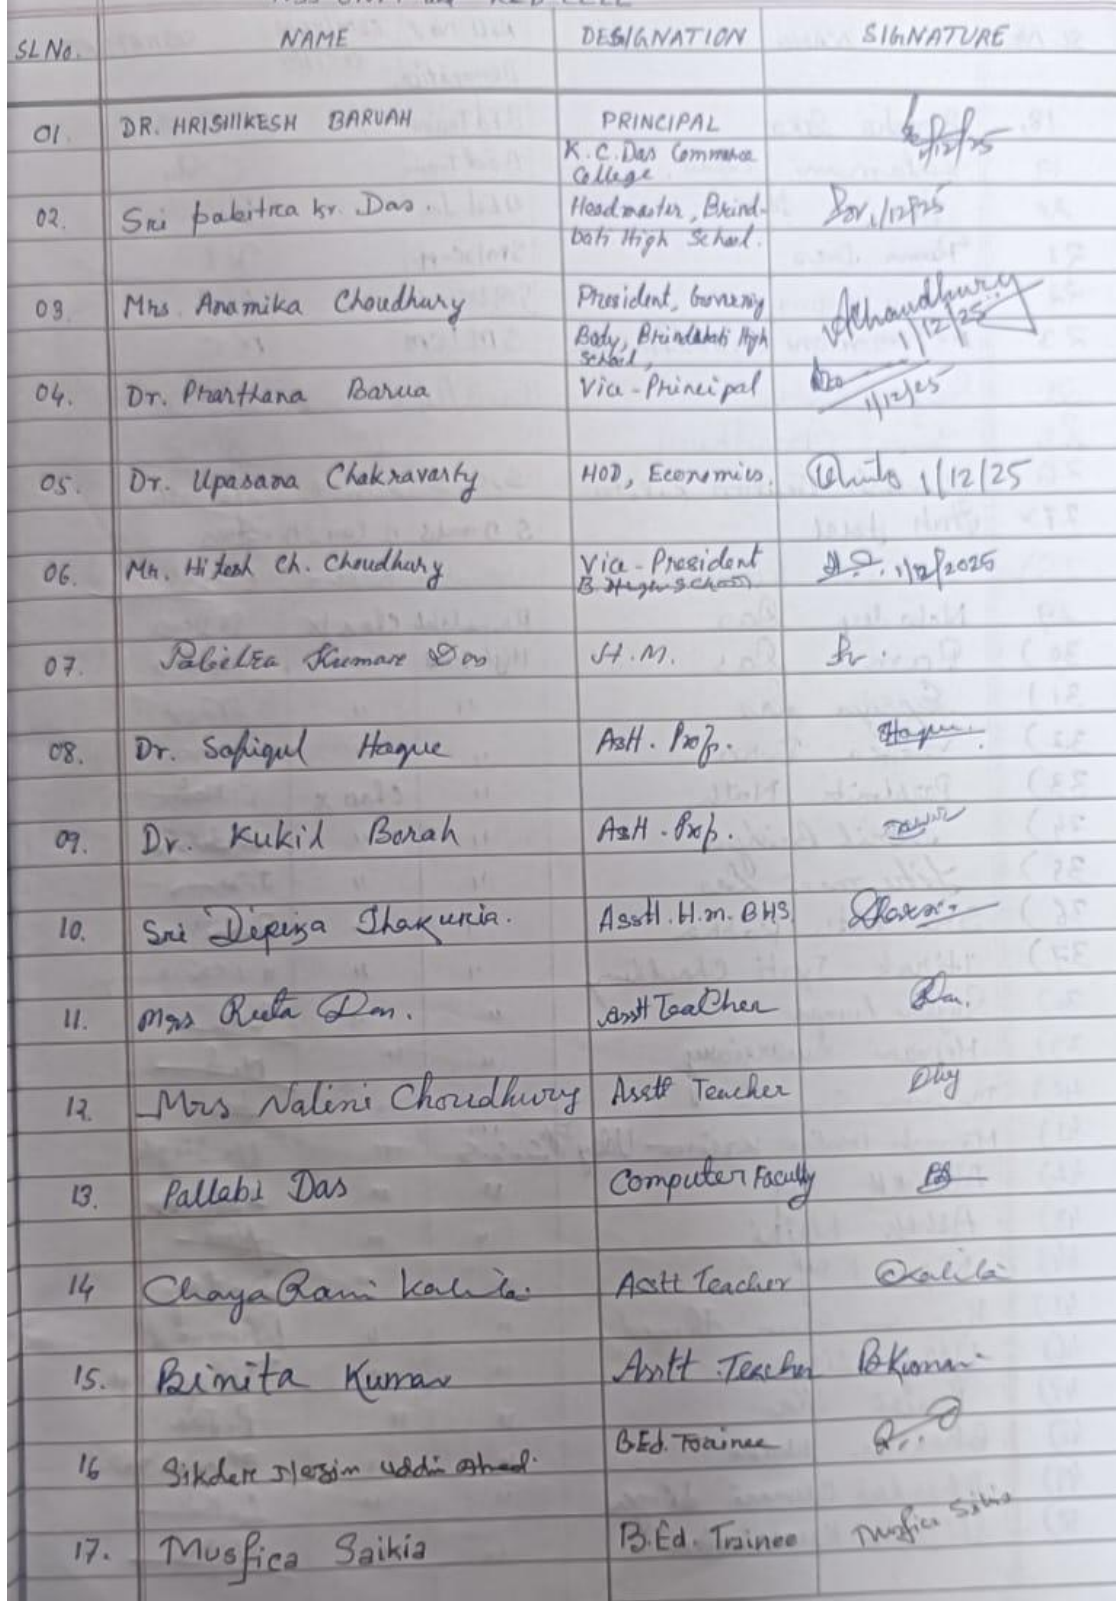 SL No. NAME DESIGNATION SIGNATURE
01. DR. HRISHIKESH BARUAH PRINCIPAL 1/12/25
K.C. Das Commerce
College
02. Sri Pabitra Kr. Das. Headmaster, Brind- 1/12/25
bati High School.
03. Mrs Anamika Choudhury President, Governing AChaudhury
Body, Brindabati High 1/12/25
School,
04. Dr. Prarthana Barua Vice-Principal
1/12/25
05. Dr. Upasana Chakravarty HOD, Economics. 1/12/25
06. Mr. Hitesh Ch. Choudhury Vice-President 1/12/2025
B. High School
07. Pabitra Kumar Das H.M.
08. Dr. Safiqul Haque Astt. Prof. Haque
09. Dr. Kukil Borah Astt. Prof.
10. Sri Dipiza Thakuria. Asstt. H.m. BHS
11. Mrs Reeta Das. Asstt Teacher Das.
12. Mrs Nalini Choudhury Asstt Teacher
13. Pallabi Das Computer Faculty
14 Chaya Rani Kalita. Asstt Teacher CKalita
15. Binita Kumar Asstt Teacher BKumar
16 Sikder uddin Ahmed. B.Ed. Trainee
17. Musfica Saikia B.Ed. Trainee Musfica Saikia